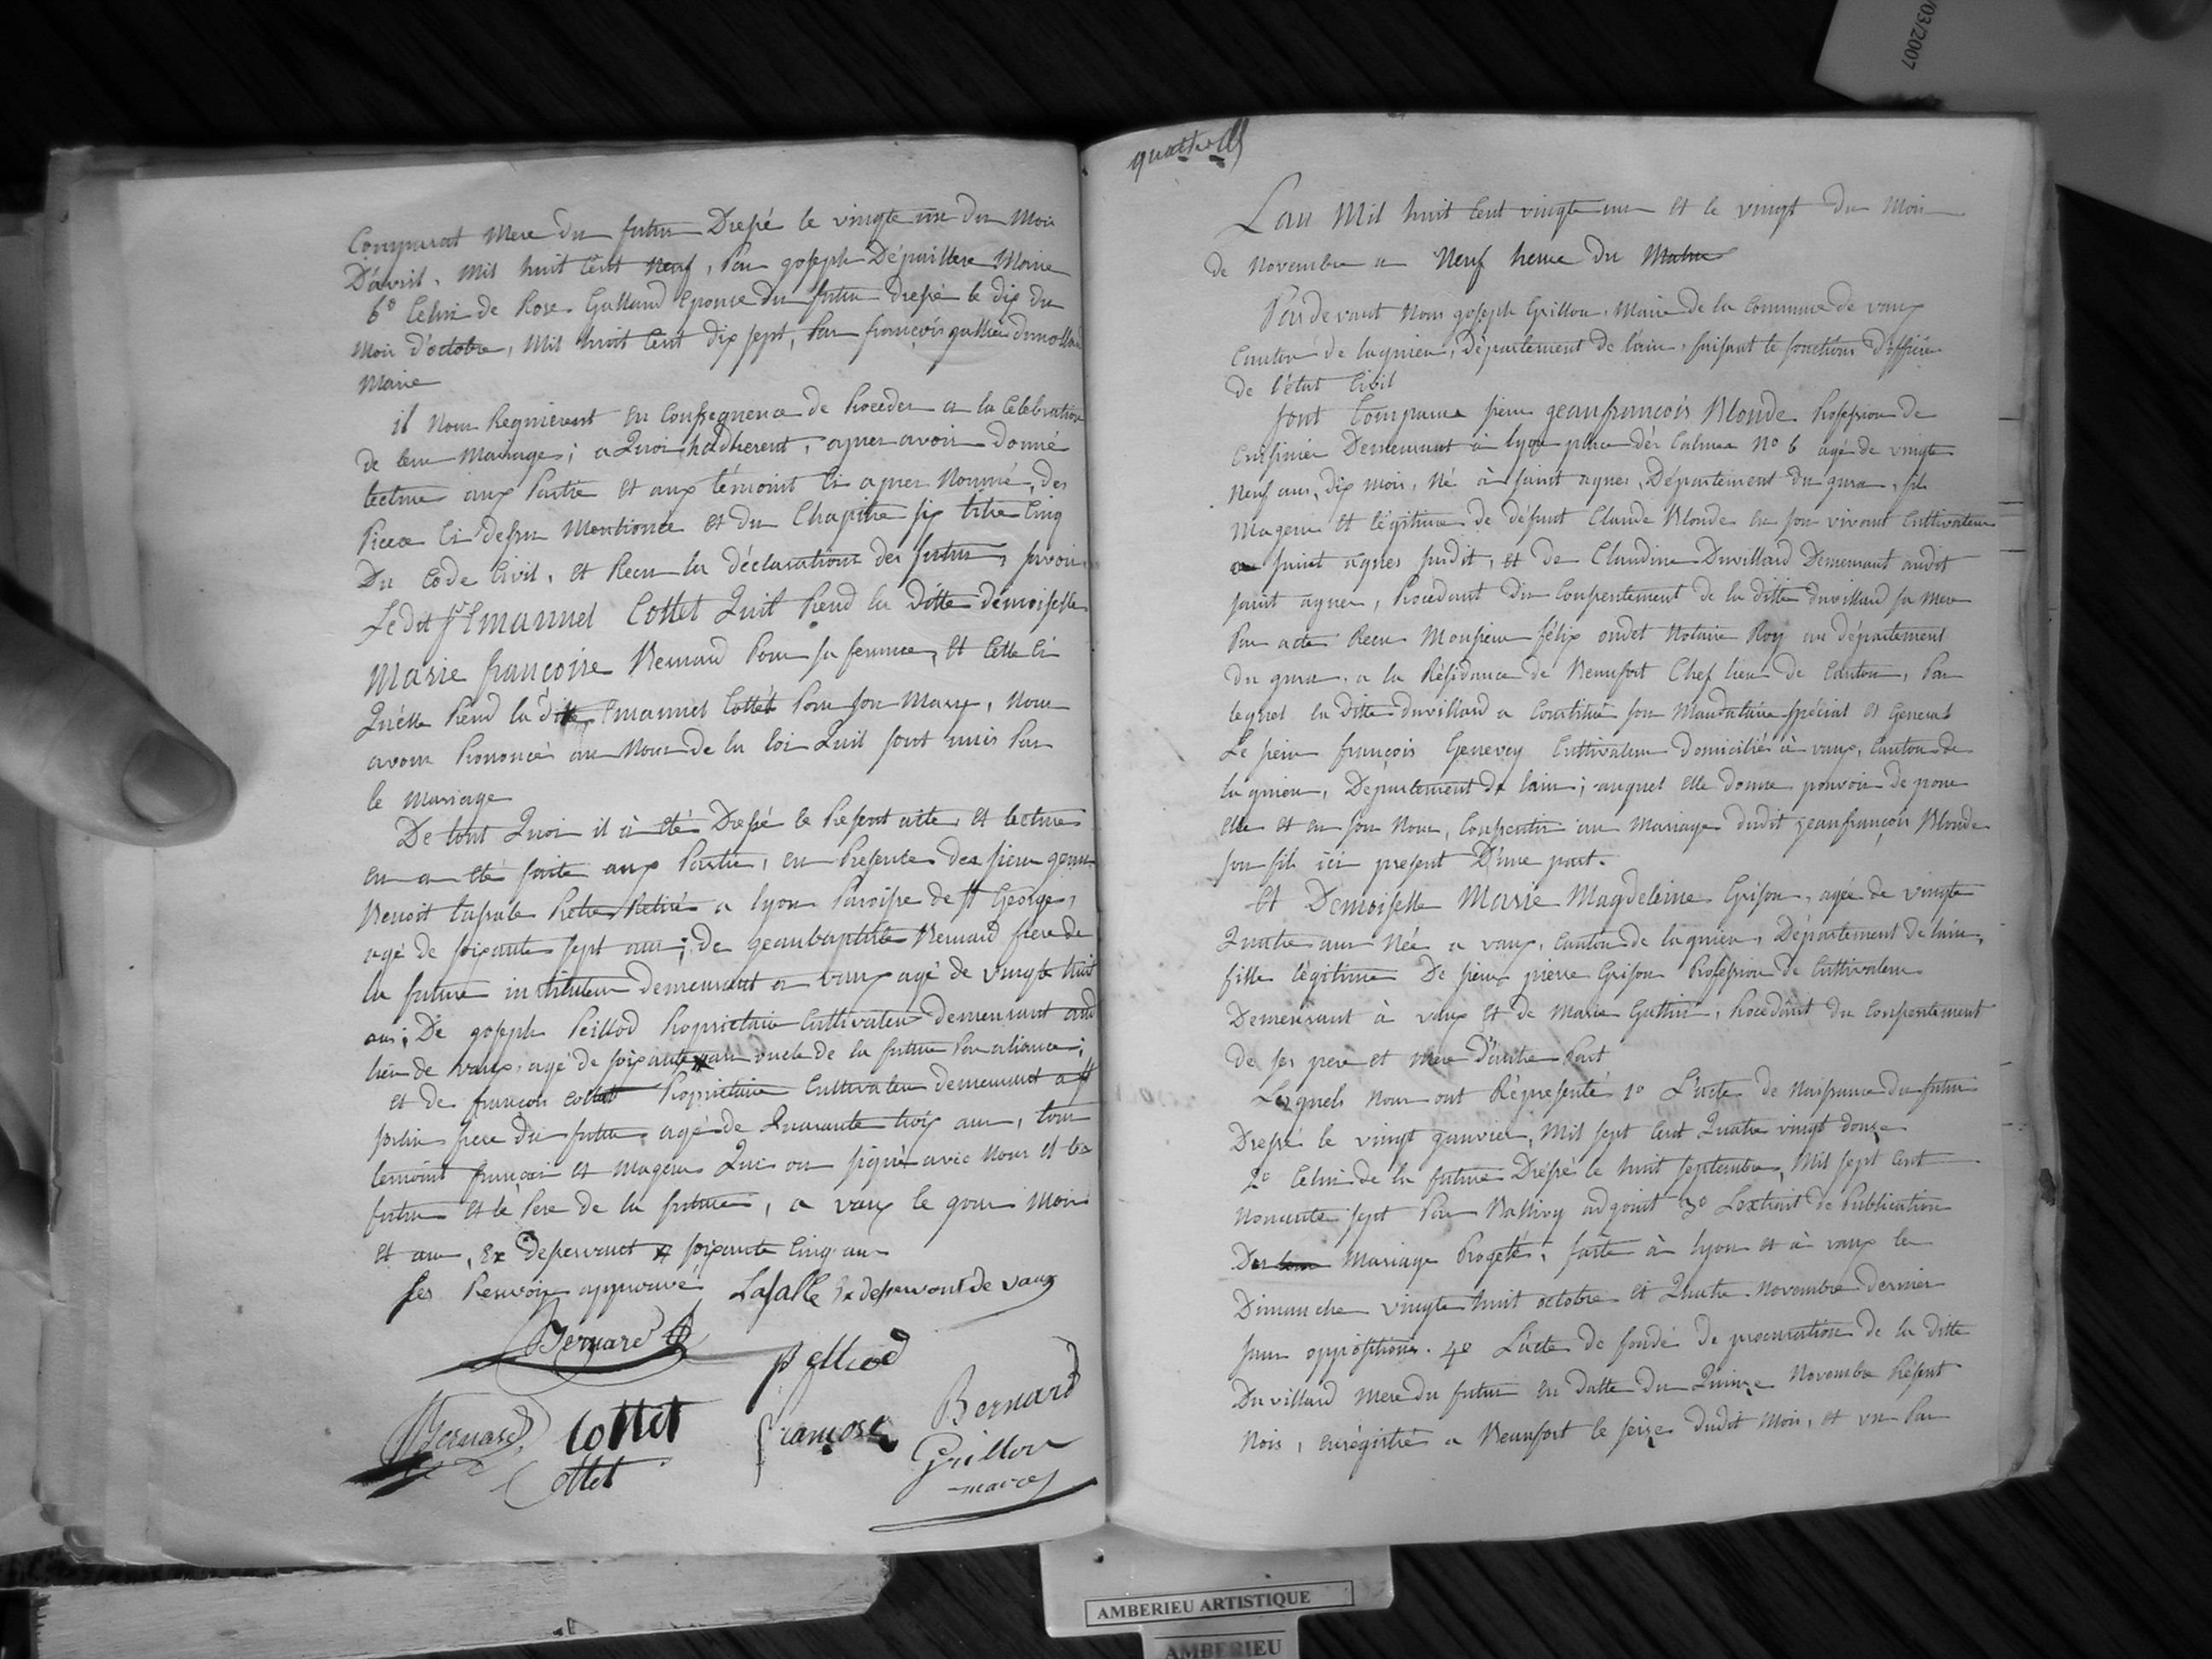 Comparat Mere du futur Dressé le vingte un du Mois
D'avril. Mil huit Cent Neuf, Par goseph Dépaillere Maire
6° Celui de Rose Galland Epouse du futur dressé le dix du
Mois d'octobre, Mil huit Cent dix sept, Par françois gallien dumollard
Maire
il Nous Requièrent En Consequence de Proceder a la Celebration
de leur Mariage; a Quoi hadherent, apres avoir donné
lecture aux Partie Et aux témoint Ci apres Nommé, des
Piece Ci dessu Mentionée et du Chapitre six titre Cinq
Du Code Civil, et Recu la déclarations des futur, savoir
Le dit sr Emannuel Cottet Quil Prend la ditte demoiselle
Marie françoise Bernard Pour sa femme, Et Celle Ci
Qu'elle Prend la dite Emannuel Cottet Pour son Mary, Nous
avons Prononcé au Nom de la loi Quil sont unis Par
le Mariage
De tout Quoi il à été Dressé le Present acte, et lecture
en a été faite aux Partie, en Presence des sieur gean
Benoit lasale Pretre Retiré a lyon Paroisse de st George,
agé de soixante sept ans; de geanbaptiste Bernard frere de
la future instituteur demeurant a vaux agé de vingte huit
ans; De goseph Peillod Propriétaire Cultivateur demeurant aud
lieu de vaux, agé de soixante ans oncle de la future Par aliance;
et de françois cottet Proprietaire Cultivateur demeurant a st
sorlin frere du futur agé de Quarante trois ans, tous
temoint françois et mageur Qui on signé avec Nous et les
futur et le Pere de la future, a vaux le gour Mois
et an, Ex desservant # soixante Cinq ans
les Renvois approuvé Lasalle Ex desservant de vaux
Bernard
peilliod
Bernard Cottet françoise Bernard
Cottet Grillon
maire
quatre
Lan Mil huit Cent vingte un et le vingt du Mois
de Novembre a Neuf heure du Matin
Pardevant Nous goseph Grillon, Maire de la Commune de vaux
Canton de lagnieu, Département de lain, faisant le fonctions d'officier
de l'état Civil
sont Comparus sieur geanfrancois Blonde Profession de
Cuisinier Demeurant à lyon place dés Calmes N° 6 agé de vingte
Neuf ans, dix mois, Né à saint agnes, Département du gura, fils
Mageur et légitime de défunt Claude Blonde en son vivant Cultivateur
a saint agnes susdit, et de Claudine Duvillard Demeurant audit
saint agnes, Procedant Du Consentement de la ditte duvillard sa Mere
Par acte Recu Monsieur félix oudet Notaire Roy au département
du gura, a la Résidance de Beaufort Chef lieu de Canton, Par
lequel la ditte duvillard a Constitué son Mandataire spécial et General
Le sieur françois Genevey Cultivateur domicilié à vaux, Canton de
lagnieu, Département de lain; auquel elle donne pouvoir de pour
elle et en son Nom, Consentir au Mariage dudit jeanfrançois Blonde
son fils ici present D'une part.
Et Demoiselle Marie Magdeleine Grison, agée de vingte
Quatre ans Née a vaux, Canton de lagnieu, Département de lain,
fille légitime De sieur pierre Grison Profession de Cultivateur
Demeurant à vaux et de Marie Guttin, Procedant du Consentement
de ses pere et mere D'autre Part
Lesquels Nous ont Répresenté 1° L'acte de Naissance du futur
Dressé le vingt ganvier, Mil sept Cent Quatre vingt douze
2° Celui de la future Dréssé le huit septembre, Mil sept Cent
Nonante sept Par Ballivy adgoint 3° Lextrait de Publication
Du Mariage Progeté, faite à lyon et à vaux le
Dimanche vingte huit octobre et Quatre Novembre dernier
sans oppositions. 4° L'acte de fondé de procuration de la ditte
Duvillard mere du futur en datte du Quinze Novembre Présent
Mois, enrégistré a Beaufort le seize dudit Mois, et vu Par
/03/2007
AMBERIEU ARTISTIQUE
AMBERIEU